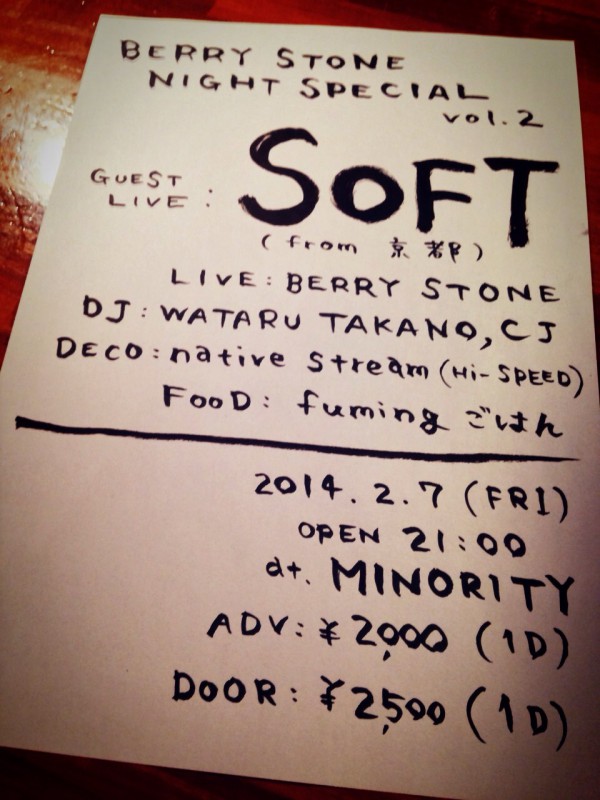 BERRY STONE
NIGHT SPECIAL
vol.2
GUEST
LIVE : SOFT
(from 京都)
LIVE: BERRY STONE
DJ: WATARU TAKANO, CJ
DECO: native stream (Hi-SPEED)
FooD: fuming ごはん
2014. 2. 7 (FRI)
OPEN 21:00
at. MINORITY
ADV: ¥2,000 (1D)
DOOR: ¥2,500 (1D)